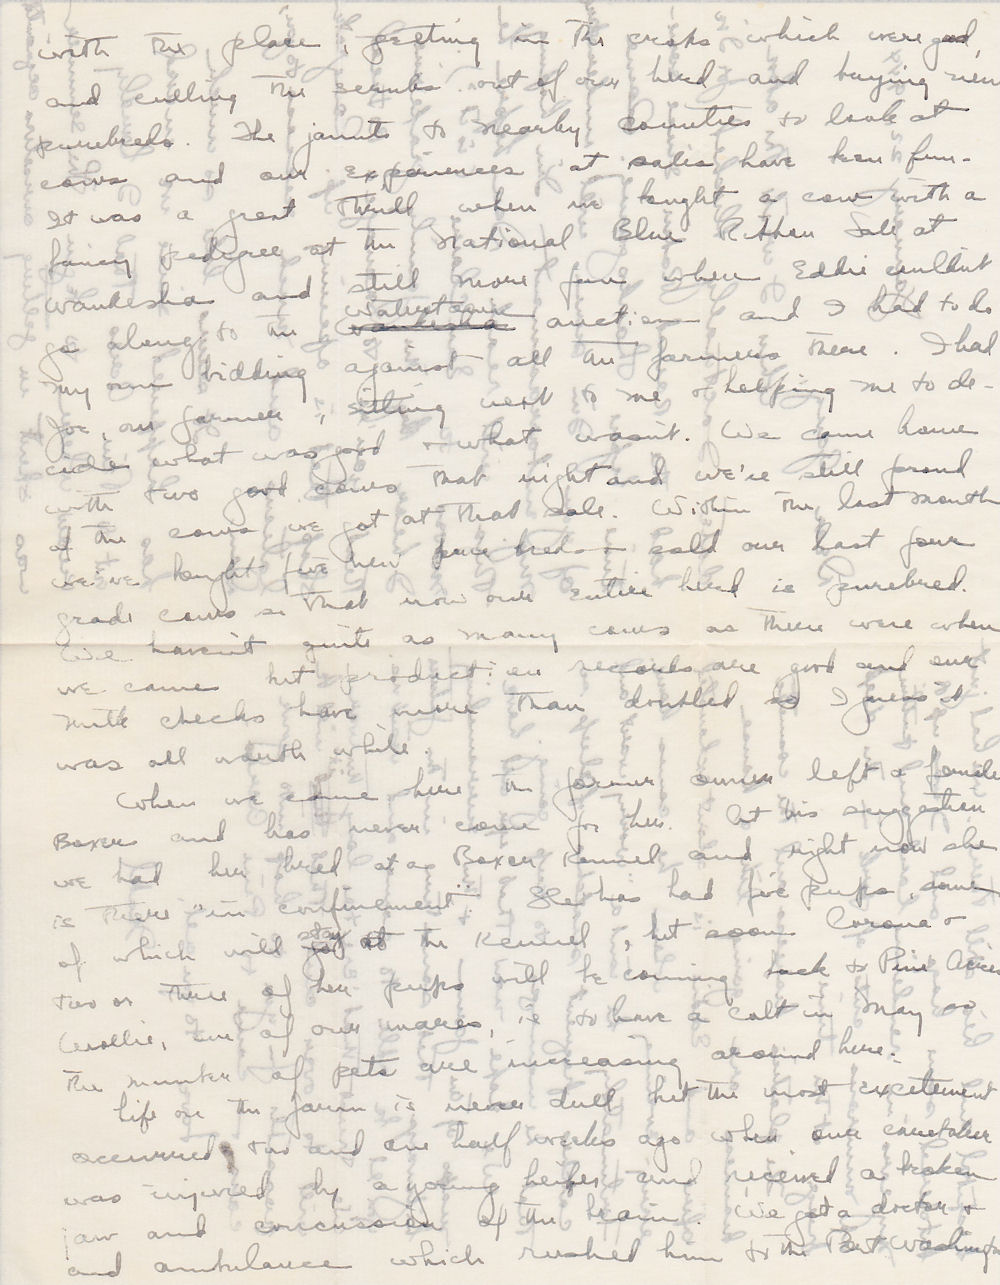 with the place, getting in the crops which were good,
and culling the scrubs out of our herd and buying new
purebreds. The jaunts to nearby counties to look at
cows and our experiences at sales have been fun.
It was a great thrill when we bought a cow with a
fancy pedigree at the National Blue Ribbon Sale at
Waukesha and still more fun when Eddie couldn't
go along to the Watertown auction and I had to do
my own bidding against all the farmers there. I had
Joe, our farmer, sitting next to me & helping me to de-
cide what was good & what wasn't. We came home
with two good cows that night and we're still proud
of the cows we got at that sale. Within the last month
we've bought five new pure breds & sold our last four
grade cows so that now our entire herd is purebred.
We haven't quite as many cows as there were when
we came but production records are good and our
milk checks have more than doubled so I guess it
was all worth while.
When we came here the former owner left a female
Boxer and has never come for her. At his suggestion
we had her bred at a Boxer Kennel and right now she
is there "in confinement". She has had five pups, some
of which will stay at the Kennel, but soon Corona &
two or three of her pups will be coming back to Pine Acres
, one of our mares, is to have a colt in May so
the number of pets are increasing around here.
Life on the farm is never dull but the most excitement
occurred two and one half weeks ago when our caretaker
was injured by a young heifer and received a broken
jaw and concussion of the brain. We got a doctor &
and ambulance which rushed him to the Port Washington